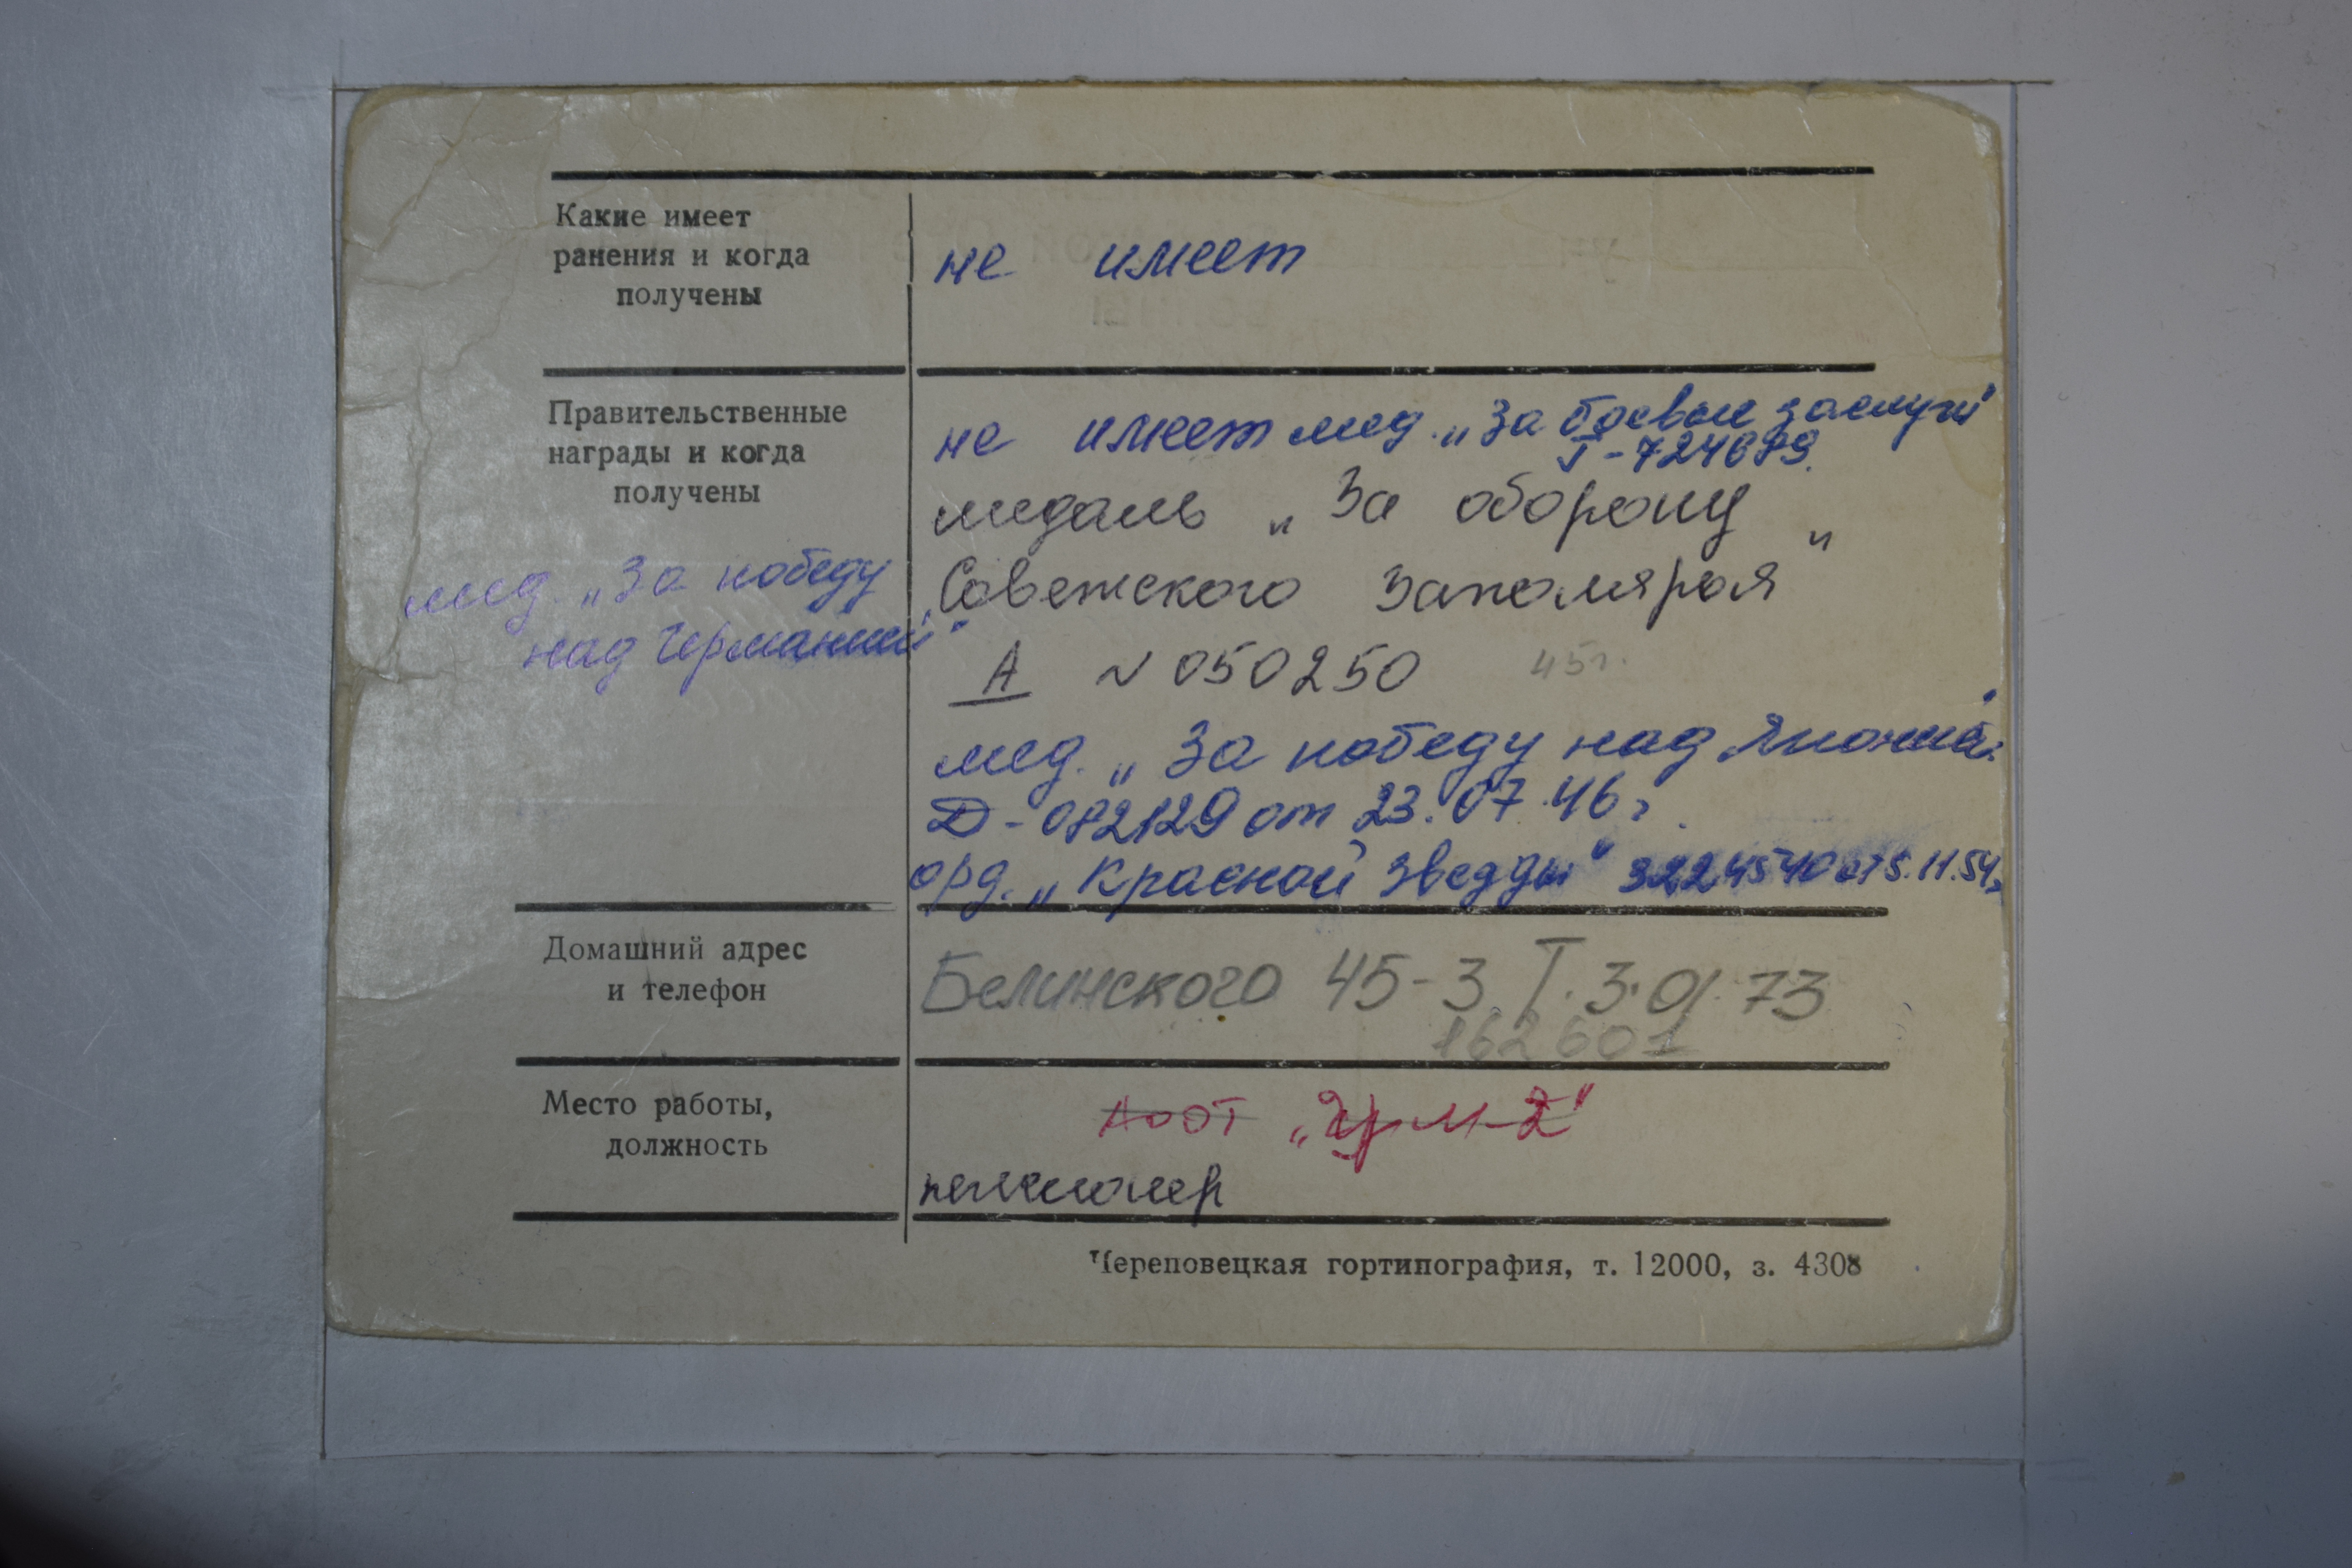 Какие имеет
ранения и когда
получены
не имеет
Правительственные
награды и когда
получены
мед. „За победу
над Германией"
не имеет мед. „За боевые заслуги
медаль „За оборону
Советского Заполярья"
А № 050250
45г.
мед. „За победу над Японией
Д-082129 от 23.07.46г.
орд. „Красной Звезды" 3224540 от 5.11.54г
Домашний адрес
и телефон
Белинского 45-3 Т. 3.01.73
162601
Место работы,
должность
АООТ
пенсионер
Череповецкая гортипография, т. 12000, з. 4308